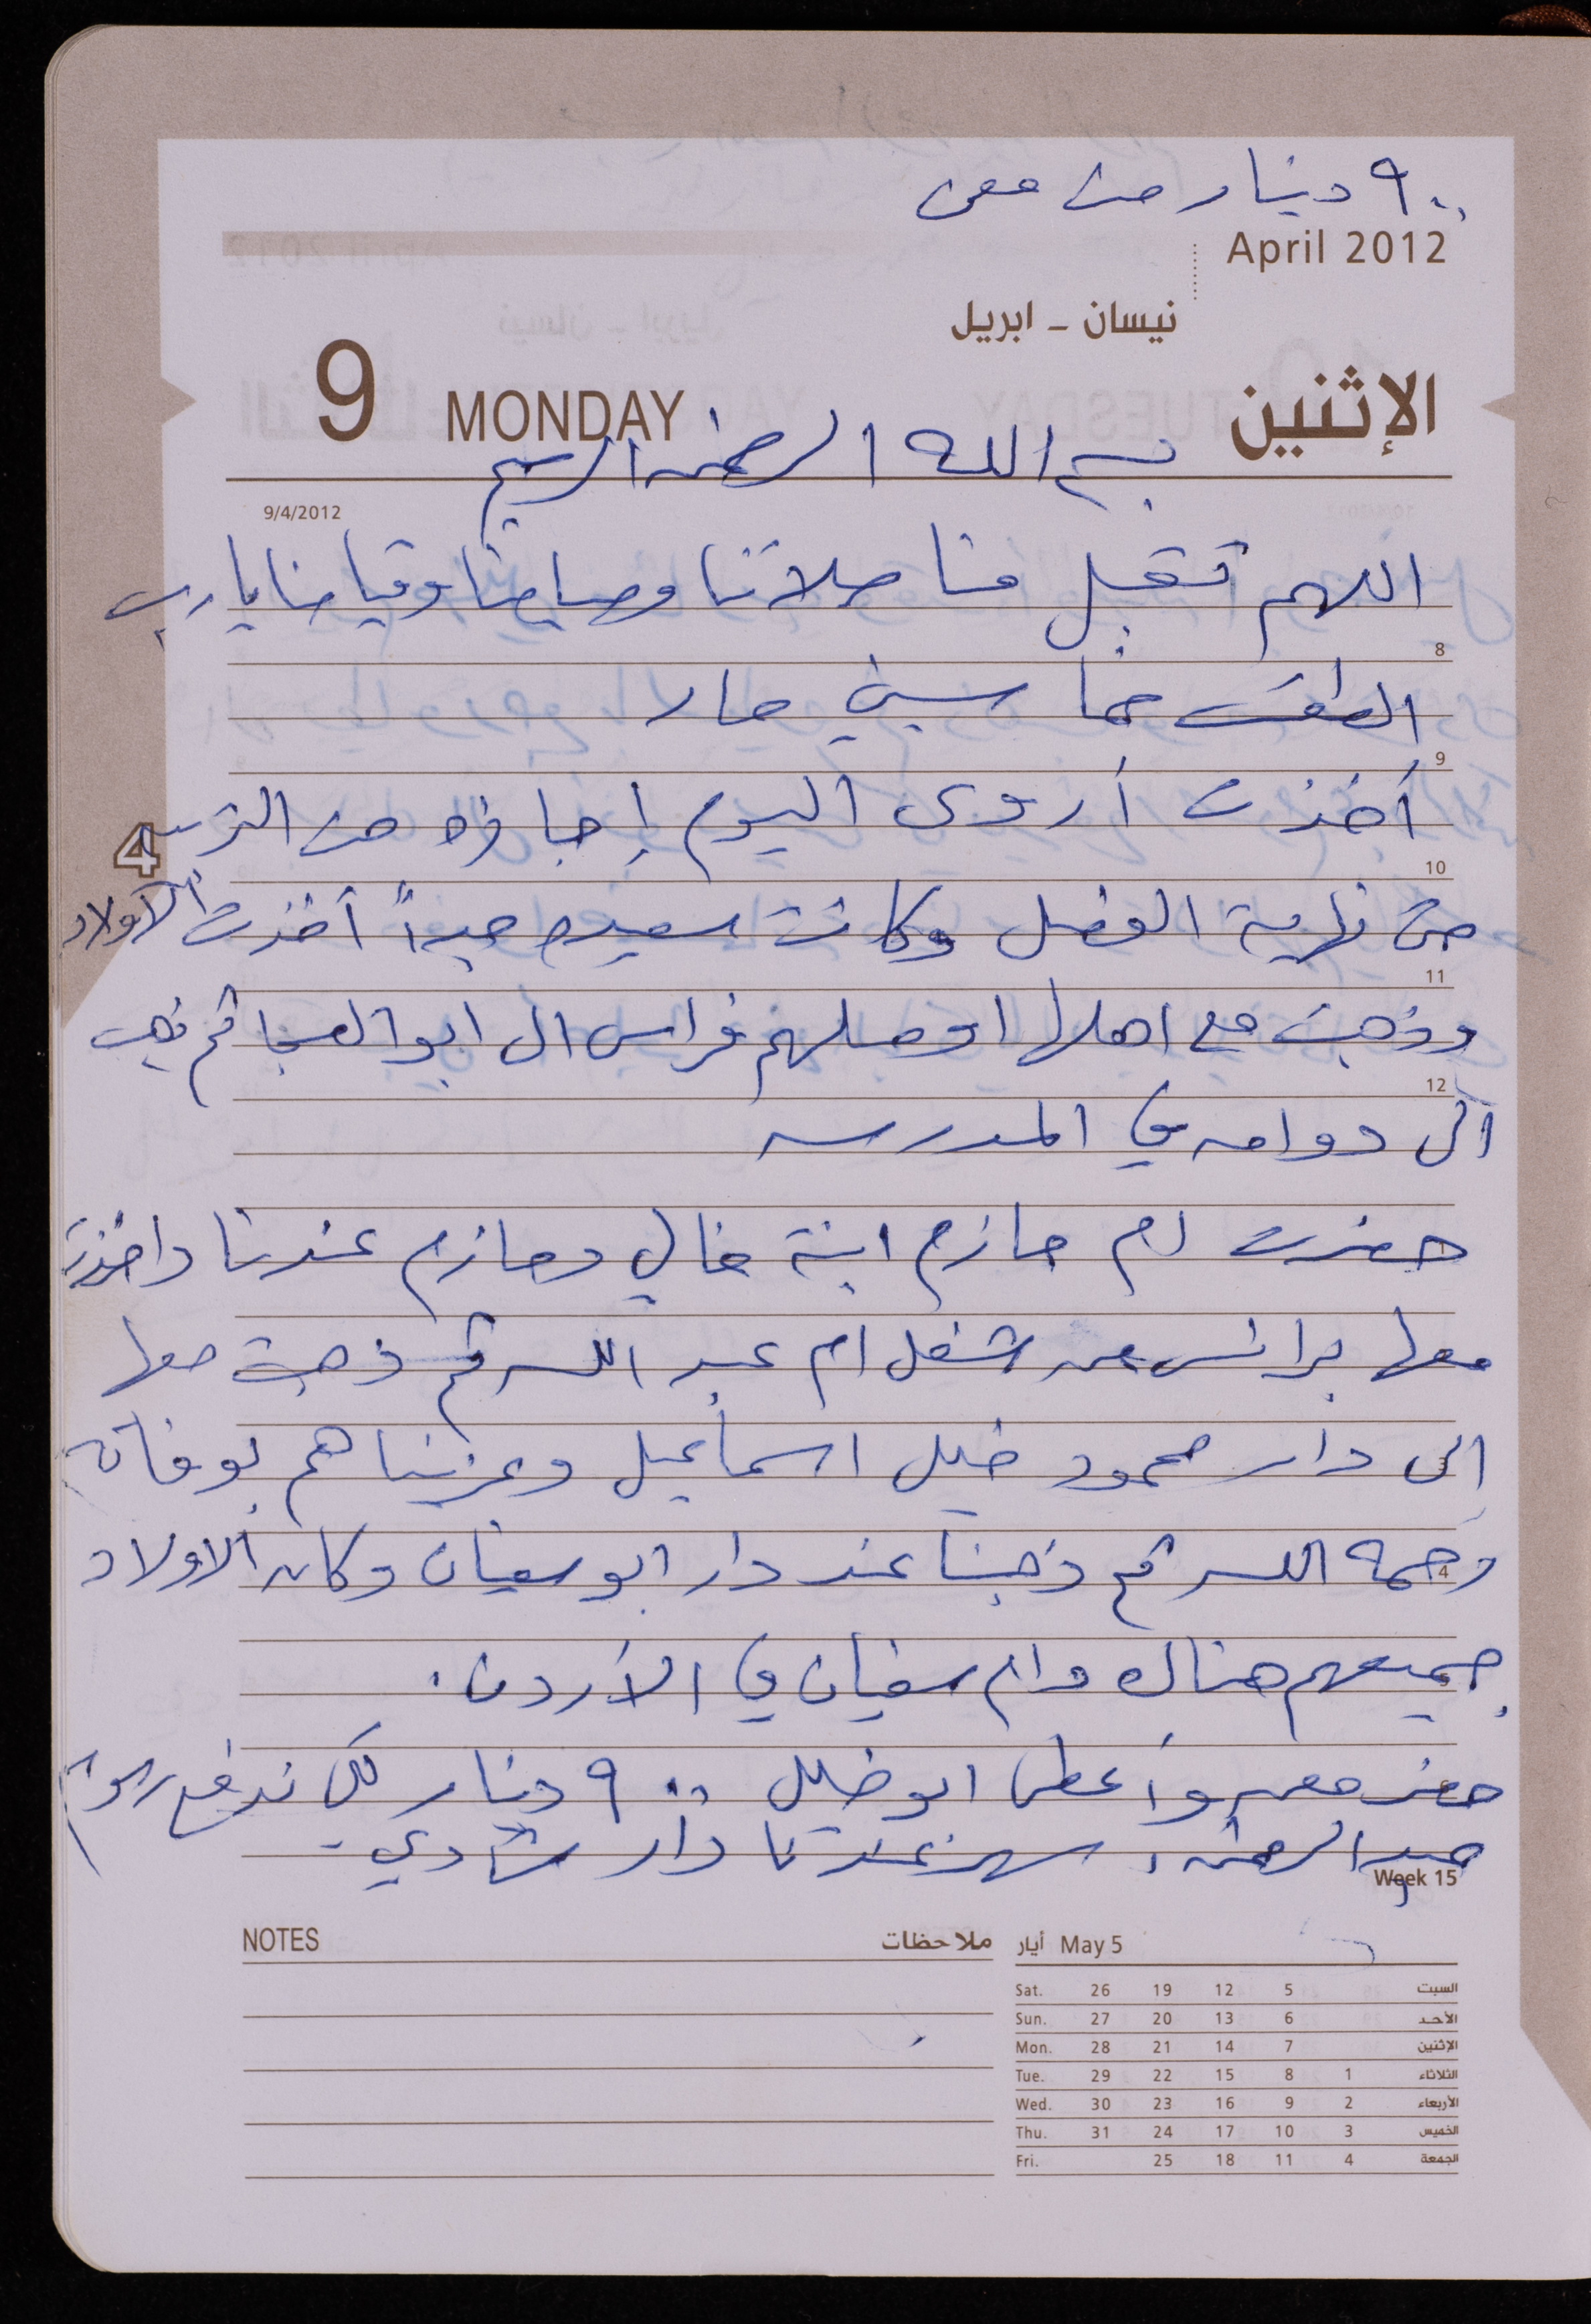 ٩٠٠ دينار من معن
April 2012
نيسان - ابريل
9 MONDAY الإثنين
بسم الله الرحمن الرحيم
9/4/2012
اللهم تقبل منا صلاتنا وصيامنا وقيامنا يا رب
8
الطقس خماسيني حار
9
أخذت أروى اليوم إجازه من التربيه
4
10
حتى نهاية الفصل وكانت سعيده جداً أخذت الأولاد
11
وذهبت مع اهلها اوصلهم فراس الى ابو العجا ثم ذهب
12
الى دوامه في المدرسه
حضرت ام حازم ابنة خالي وحازم عندنا واخذت
معها برانس من شغل ام عبد الله ثم ذهبت معها
الى دار محمود خليل اسماعيل وعزيناهم بوفاته
3
رحمه الله ثم ذهبنا عند دار ابو سفيان وكان الاولاد
4
جميعهم هناك وام سفيان في الأردن.
حضر معن وأعطى ابو خليل ٩٠٠ دينار لكي ندفع
عبد الرحمن، سهر عندنا دار شادي.
Week 15
NOTES ملاحظات
May 5 أيار
Sat. 26 19 12 5 السبت
Sun. 27 20 13 6 الأحد
Mon. 28 21 14 7 الإثنين
Tue. 29 22 15 8 1 الثلاثاء
Wed. 30 23 16 9 2 الأربعاء
Thu. 31 24 17 10 3 الخميس
Fri. 25 18 11 4 الجمعة